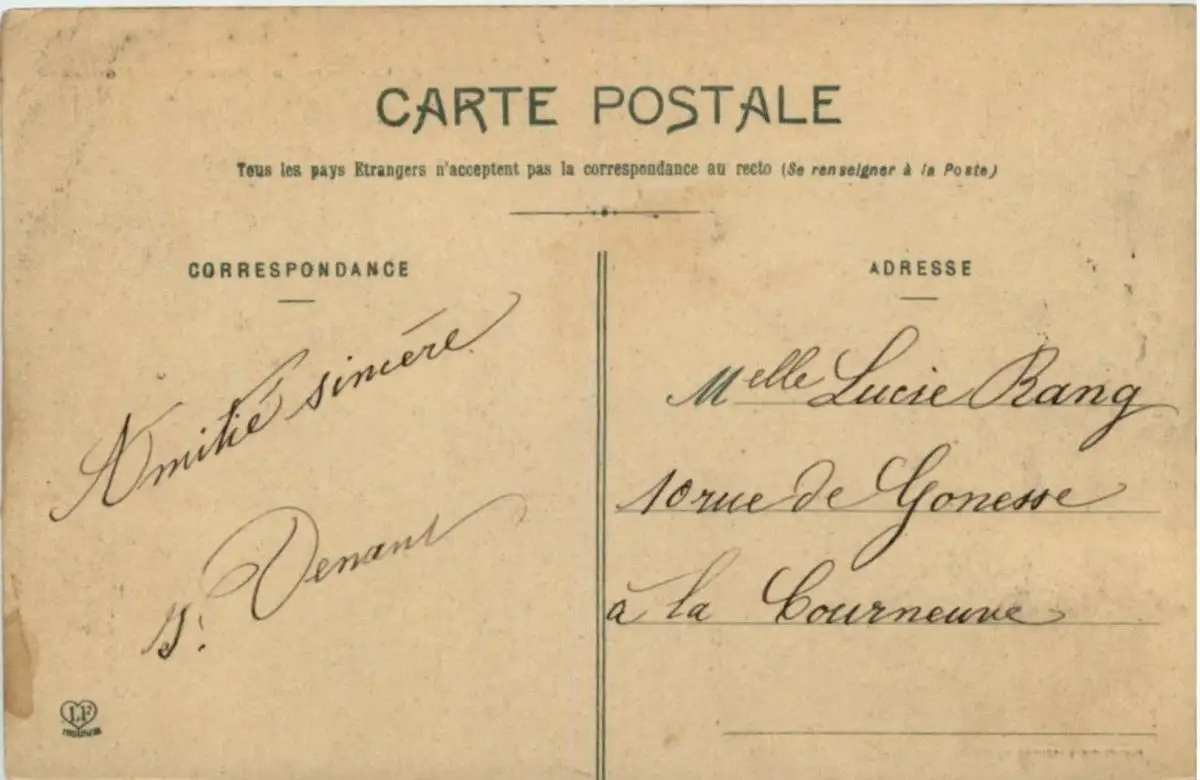 CARTE POSTALE
Tous les pays Etrangers n'acceptent pas la correspondance au recto (Se renseigner à la Poste)
CORRESPONDANCE
Amitié sincère
Venant
LF
ADRESSE
Melle Lucie Rang
10 rue de Gonesse
à la Courneuve